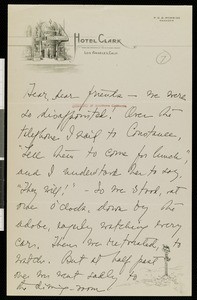 HOTEL CLARK
LOS ANGELES, CALIF.
Dear, dear friends — we were
so disappointed. Over the
telephone I said to Constance,
"Tell them to come for lunch",
and I understood her to say,
"They will!" - So we stood, at
one o'clock, down by the
adobe, vainly watching every
car. Then we retreated, to
watch. But at half past
we went sadly to
the dining-room